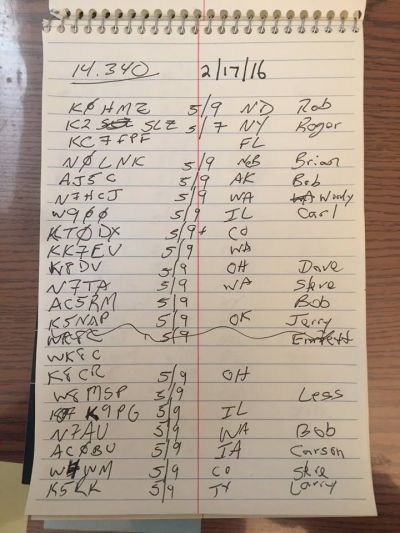 14.340 2/17/16
KØHMZ 5/9 ND Rob
K2 SLZ 5/7 NY Roger
KC7FPF FL
NØLNK 5/9 Brian
AJ5C 5/9 AK Bob
N7HCJ 5/9 WA Woody
W9ØØ 5/9 IL Carl
KTØDX 5/9+ CO
KK7EV 5/9 WA
K8DV 5/9 OH Dave
N7TA 5/9 WA Steve
AC5RM 5/9 Bob
K5NAP 5/9 OK Jerry
5/9
WK8C
K8CR 5/9 OH
W8MSP 5/9 Less
K9PG 5/9 IL
N7AU 5/9 WA Bob
ACØBU 5/9 IA Carson
5/9 CO
K5KK 5/9 TX Larry